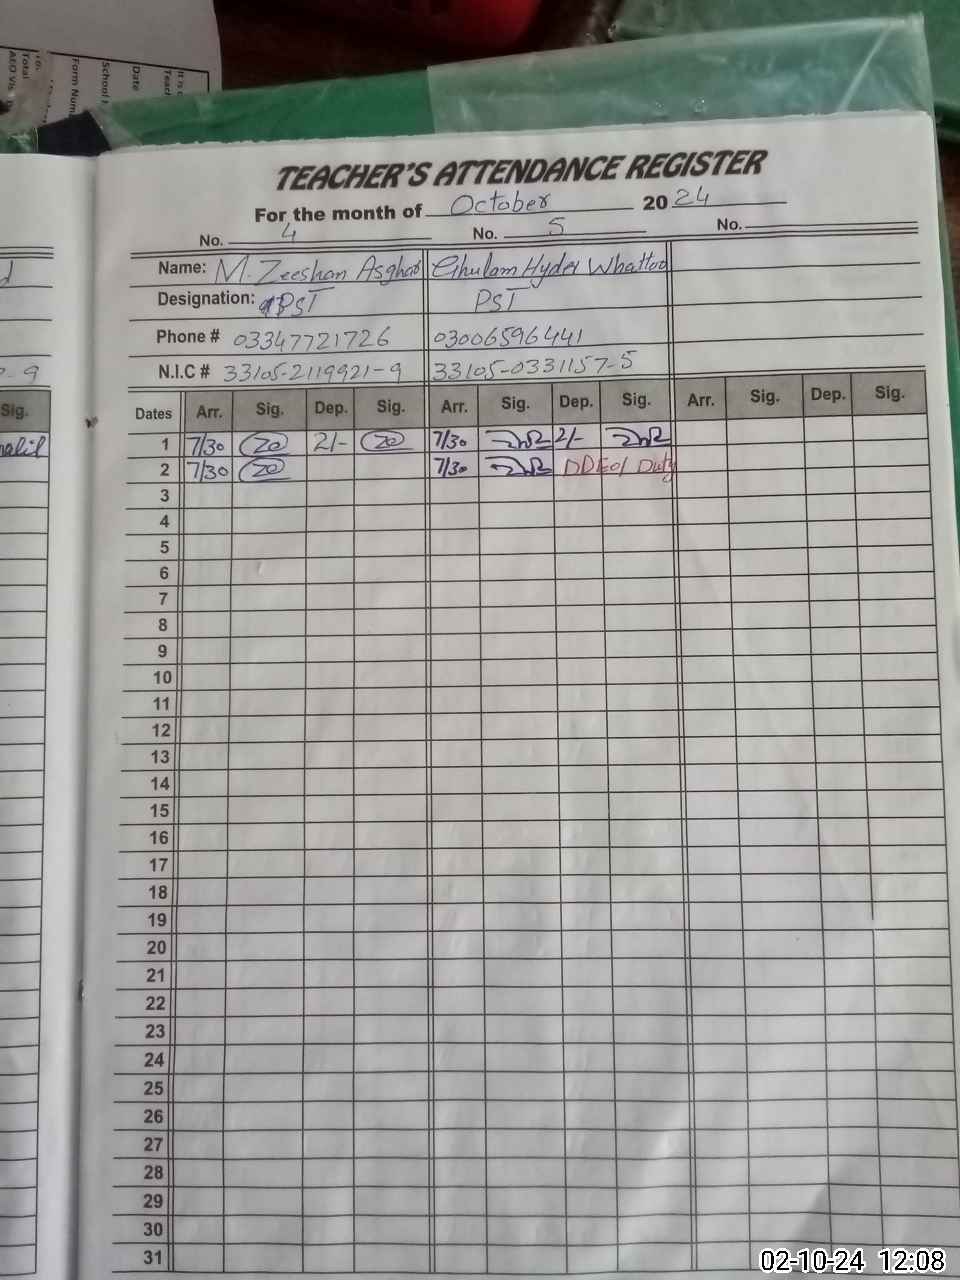 It is
Teac
Date
School
Form Num
Total
AEO Vis
TEACHER'S ATTENDANCE REGISTER
For the month of October 2024
No. 4 No. 5 No.
Name: M. Zeeshan Asghar Ghulam Hyder Whattoo
Designation: PST PST
Phone # 03347721726 03006596441
9 N.I.C # 33105-2119921-9 33105-0331157-5
Sig. Dates Arr. Sig. Dep. Sig. Arr. Sig. Dep. Sig. Arr. Sig. Dep. Sig.
1 7/30 2/- 7/30 2/-
2 7/30 7/30 DDEO/ Duty
3
4
5
6
7
8
9
10
11
12
13
14
15
16
17
18
19
20
21
22
23
24
25
26
27
28
29
30
31
02-10-24 12:08